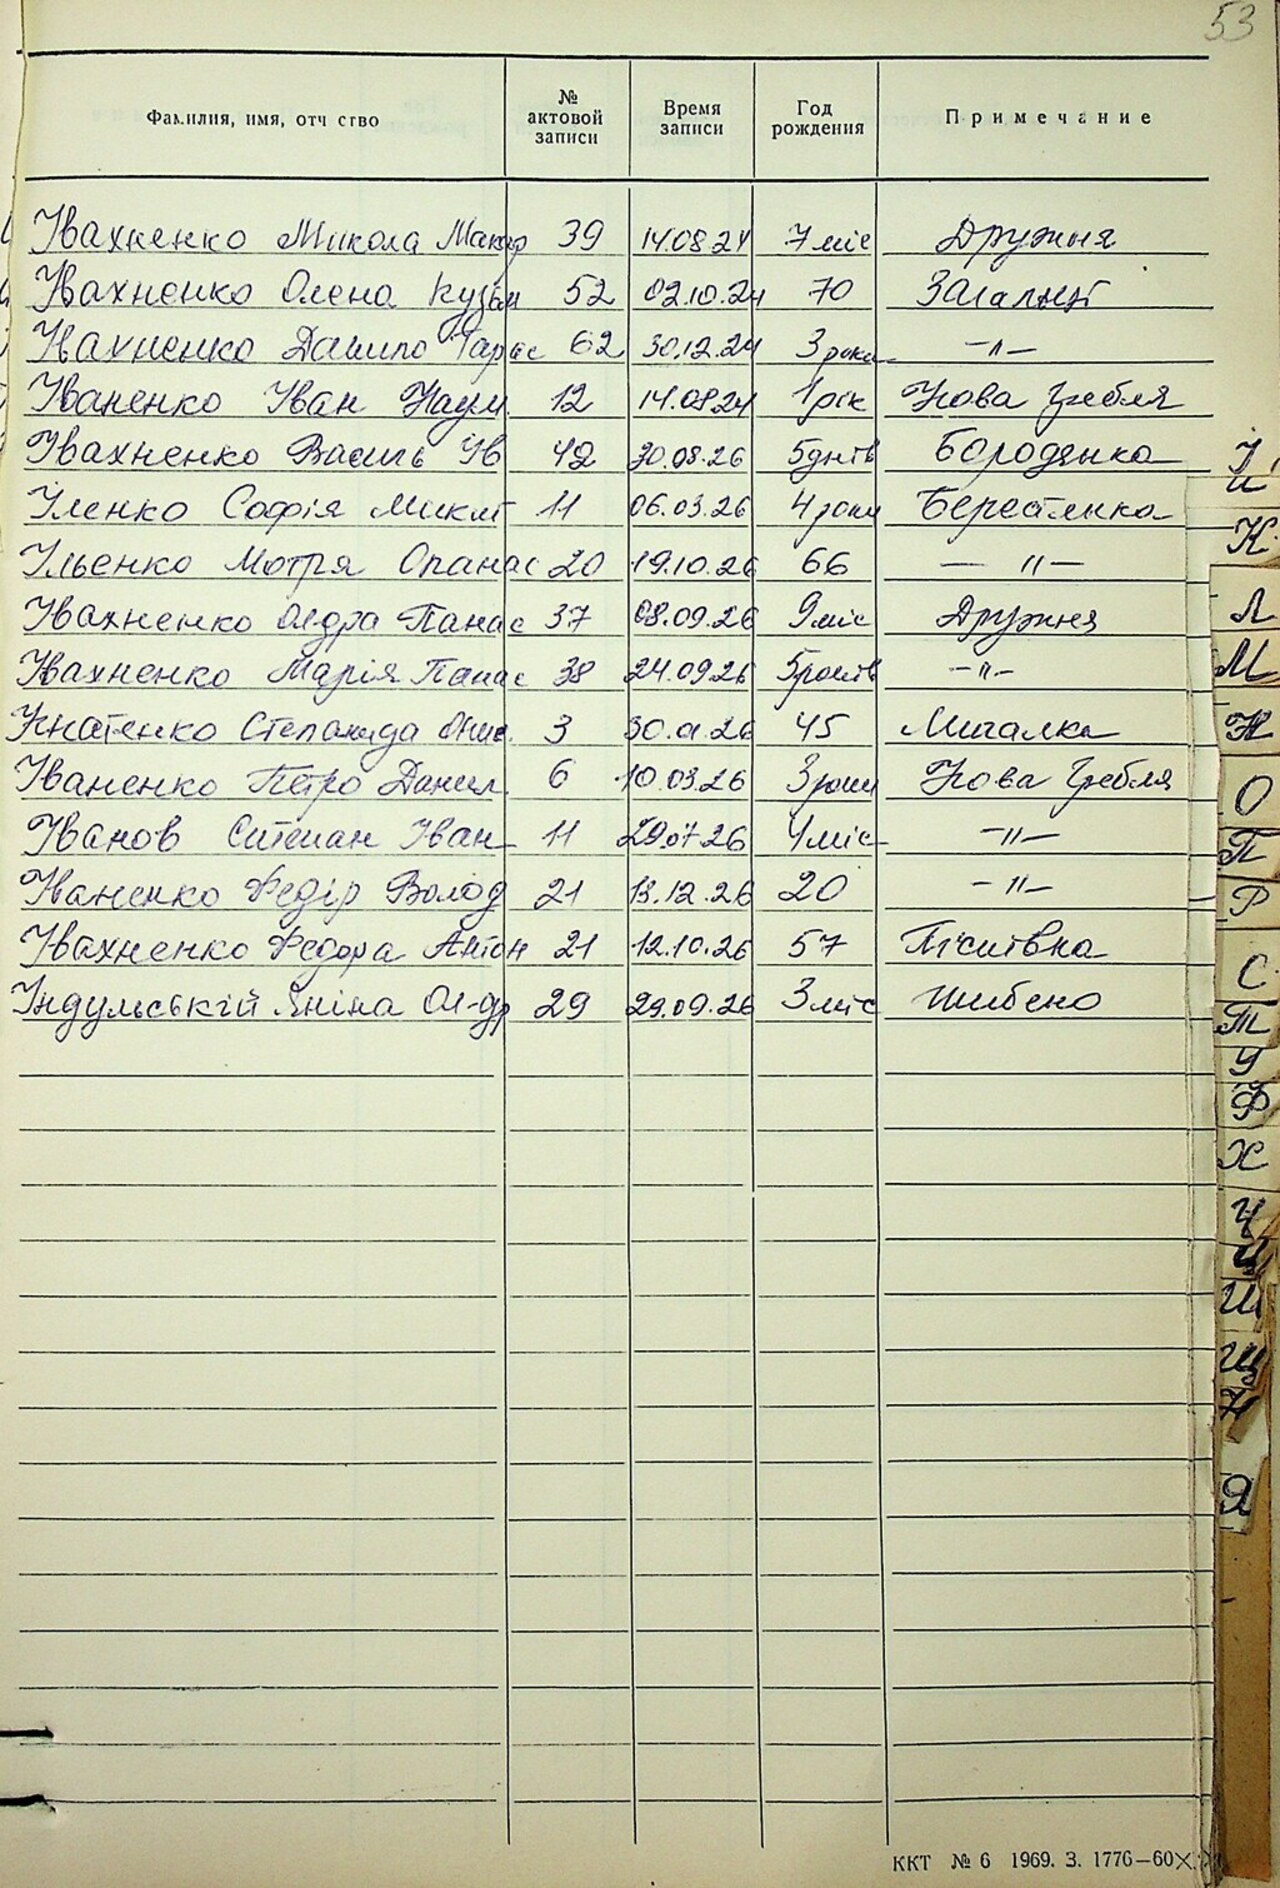 53
Фамилия, имя, отчество № актовой записи Время записи Год рождения Примечание
Івахненко Микола Макар 39 14.08.24 7 міс Дружня
Івахненко Олена Кузьм 52 02.10.24 70 Загальці
Івахненко Данило Тарас 62 30.12.24 3 роки –"–
Іваненко Іван Наум. 12 14.08.24 1 рік Нова Гребля
Івахненко Василь Ів 42 30.08.26 5 днів Бородянка
Іленко Софія Микит 11 06.03.26 4 роки Берестянка
Ільенко Мотря Опанас 20 19.10.26 66 –"–
Івахненко Ол-дра Панас 37 08.09.26 9 міс Дружня
Івахненко Марія Панас 38 24.09.26 5 років –"–
Ігнатенко Степанида Онис. 3 30.01.26 45 Мигалки
Іваненко Петро Данил. 6 10.03.26 3 роки Нова Гребля
Іванов Степан Іван 11 29.07.26 4 міс –"–
Іваненко Федір Волод 21 13.12.26 20 –"–
Івахненко Федора Антон 21 12.10.26 57 Пісківка
Індульській Яніна Ол-др 29 29.09.26 3 міс Шибено
І
К
Л
М
Н
О
П
Р
С
Т
У
Ф
Х
Ц
Ш
Щ
Я
ККТ № 6 1969. З. 1776—60X.